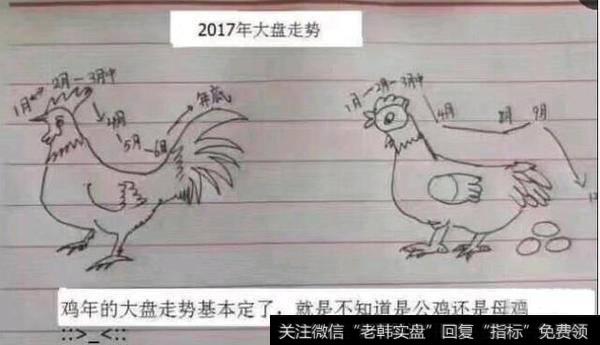 2017年大盘走势
1月
2月-3月中
4月
5月-6月
年底
1月-2月-3月中
4月
8月
9月
鸡年的大盘走势基本定了,就是不知道是公鸡还是母鸡
::>_<::
关注微信“老韩实盘”回复“指标”免费领